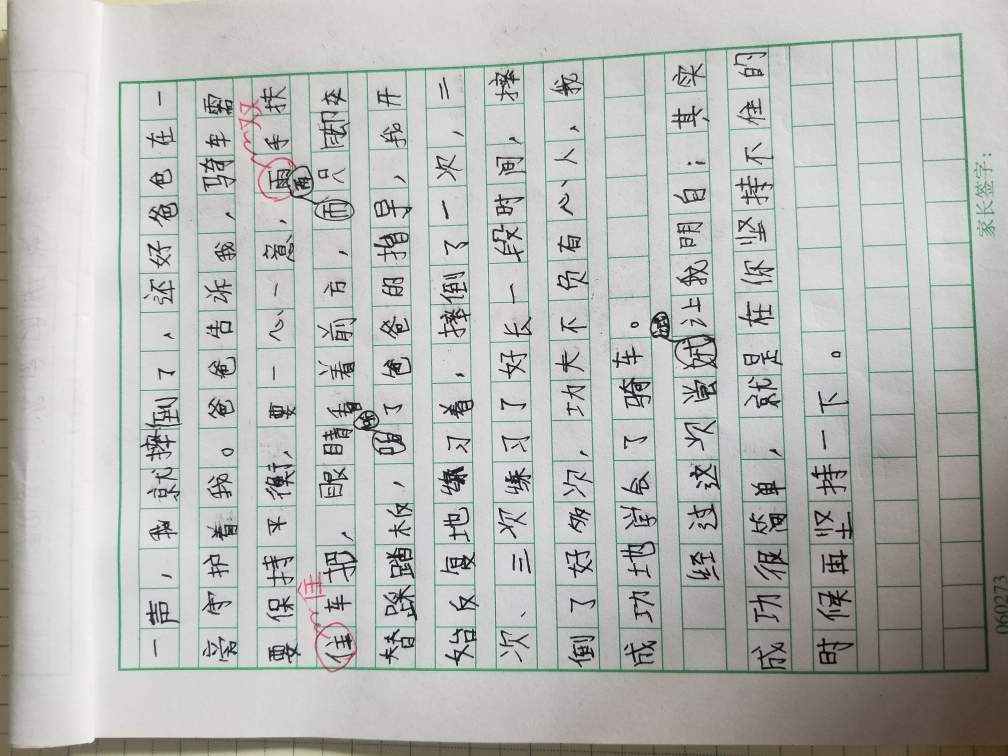 一声，我就摔倒了，还好爸爸在一
旁守护着我。爸爸告诉我，骑车需
双
要保持平衡，要一心一意，两手扶
住
住车把，眼睛看着前方，而只脚交
替踩踏板，了爸爸的指导，我开
始反复地练习着，摔倒了一次，二
次、三次练习了好长一段时间，摔
倒了好多次，功夫不负有心人，我
成功地学会了骑车。
经过这次尝试让我明白：其实
成功很简单，就是在你坚持不住的
时候再坚持一下。
家长签字：